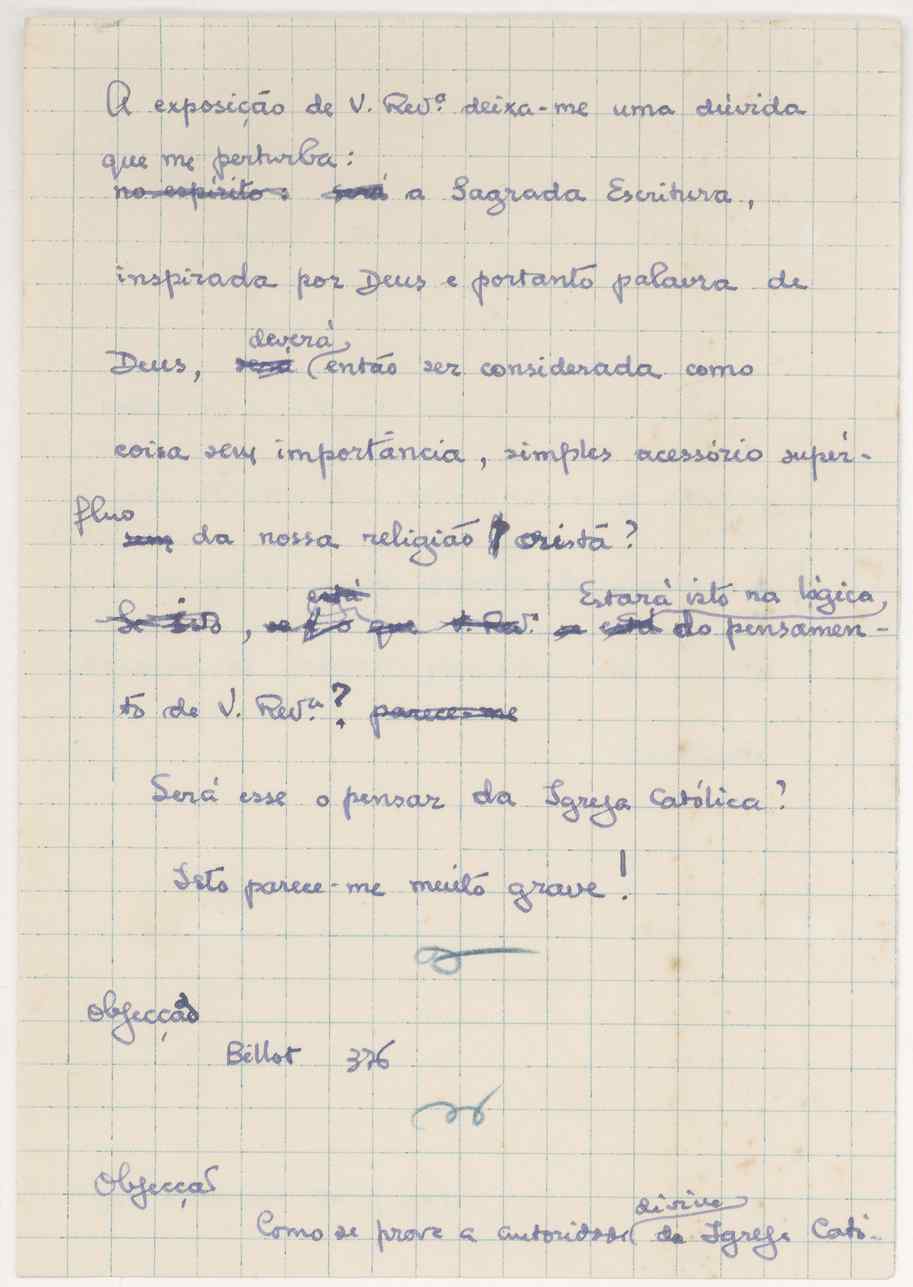 A exposição de V. Rev.ª deixa-me uma dúvida
que me perturba:
no espírito: será a Sagrada Escritura,
inspirada por Deus e portanto palavra de
deverá
Deus, será então ser considerada como
coisa sem importância, simples acessório supér-
fluo
sem da nossa religião cristã?
está Estará isto na lógica,
Se isto, se é o que V. Rev.ª do pensamen-
to de V. Rev.ª? parece-me
Será esse o pensar da Igreja Católica?
Isto parece-me muito grave!
Objecção
Billot 376
Objecção
divina
Como se prova a autoridade da Igreja Cató-